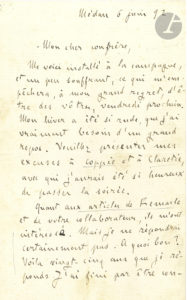 Médan 6 juin 92
Mon cher confrère,
Me voici installé à la campagne,
et un peu souffrant, ce qui m'em-
pêchera, à mon grand regret, d'ê-
tre des vôtres, vendredi prochain.
Mon hiver a été si rude, que j'ai
vraiment besoin d'un grand
repos. Veuillez présenter mes
excuses à Coppée et à Claretie,
avec qui j'aurais été si heureux
de passer la soirée.
Quant aux articles de
et de votre collaborateur, ils m'ont
intéressé. Mais je ne répondrai
certainement pas. A quoi bon?
Voilà vingt-cinq ans que je ré-
ponds J'ai fini par être con-